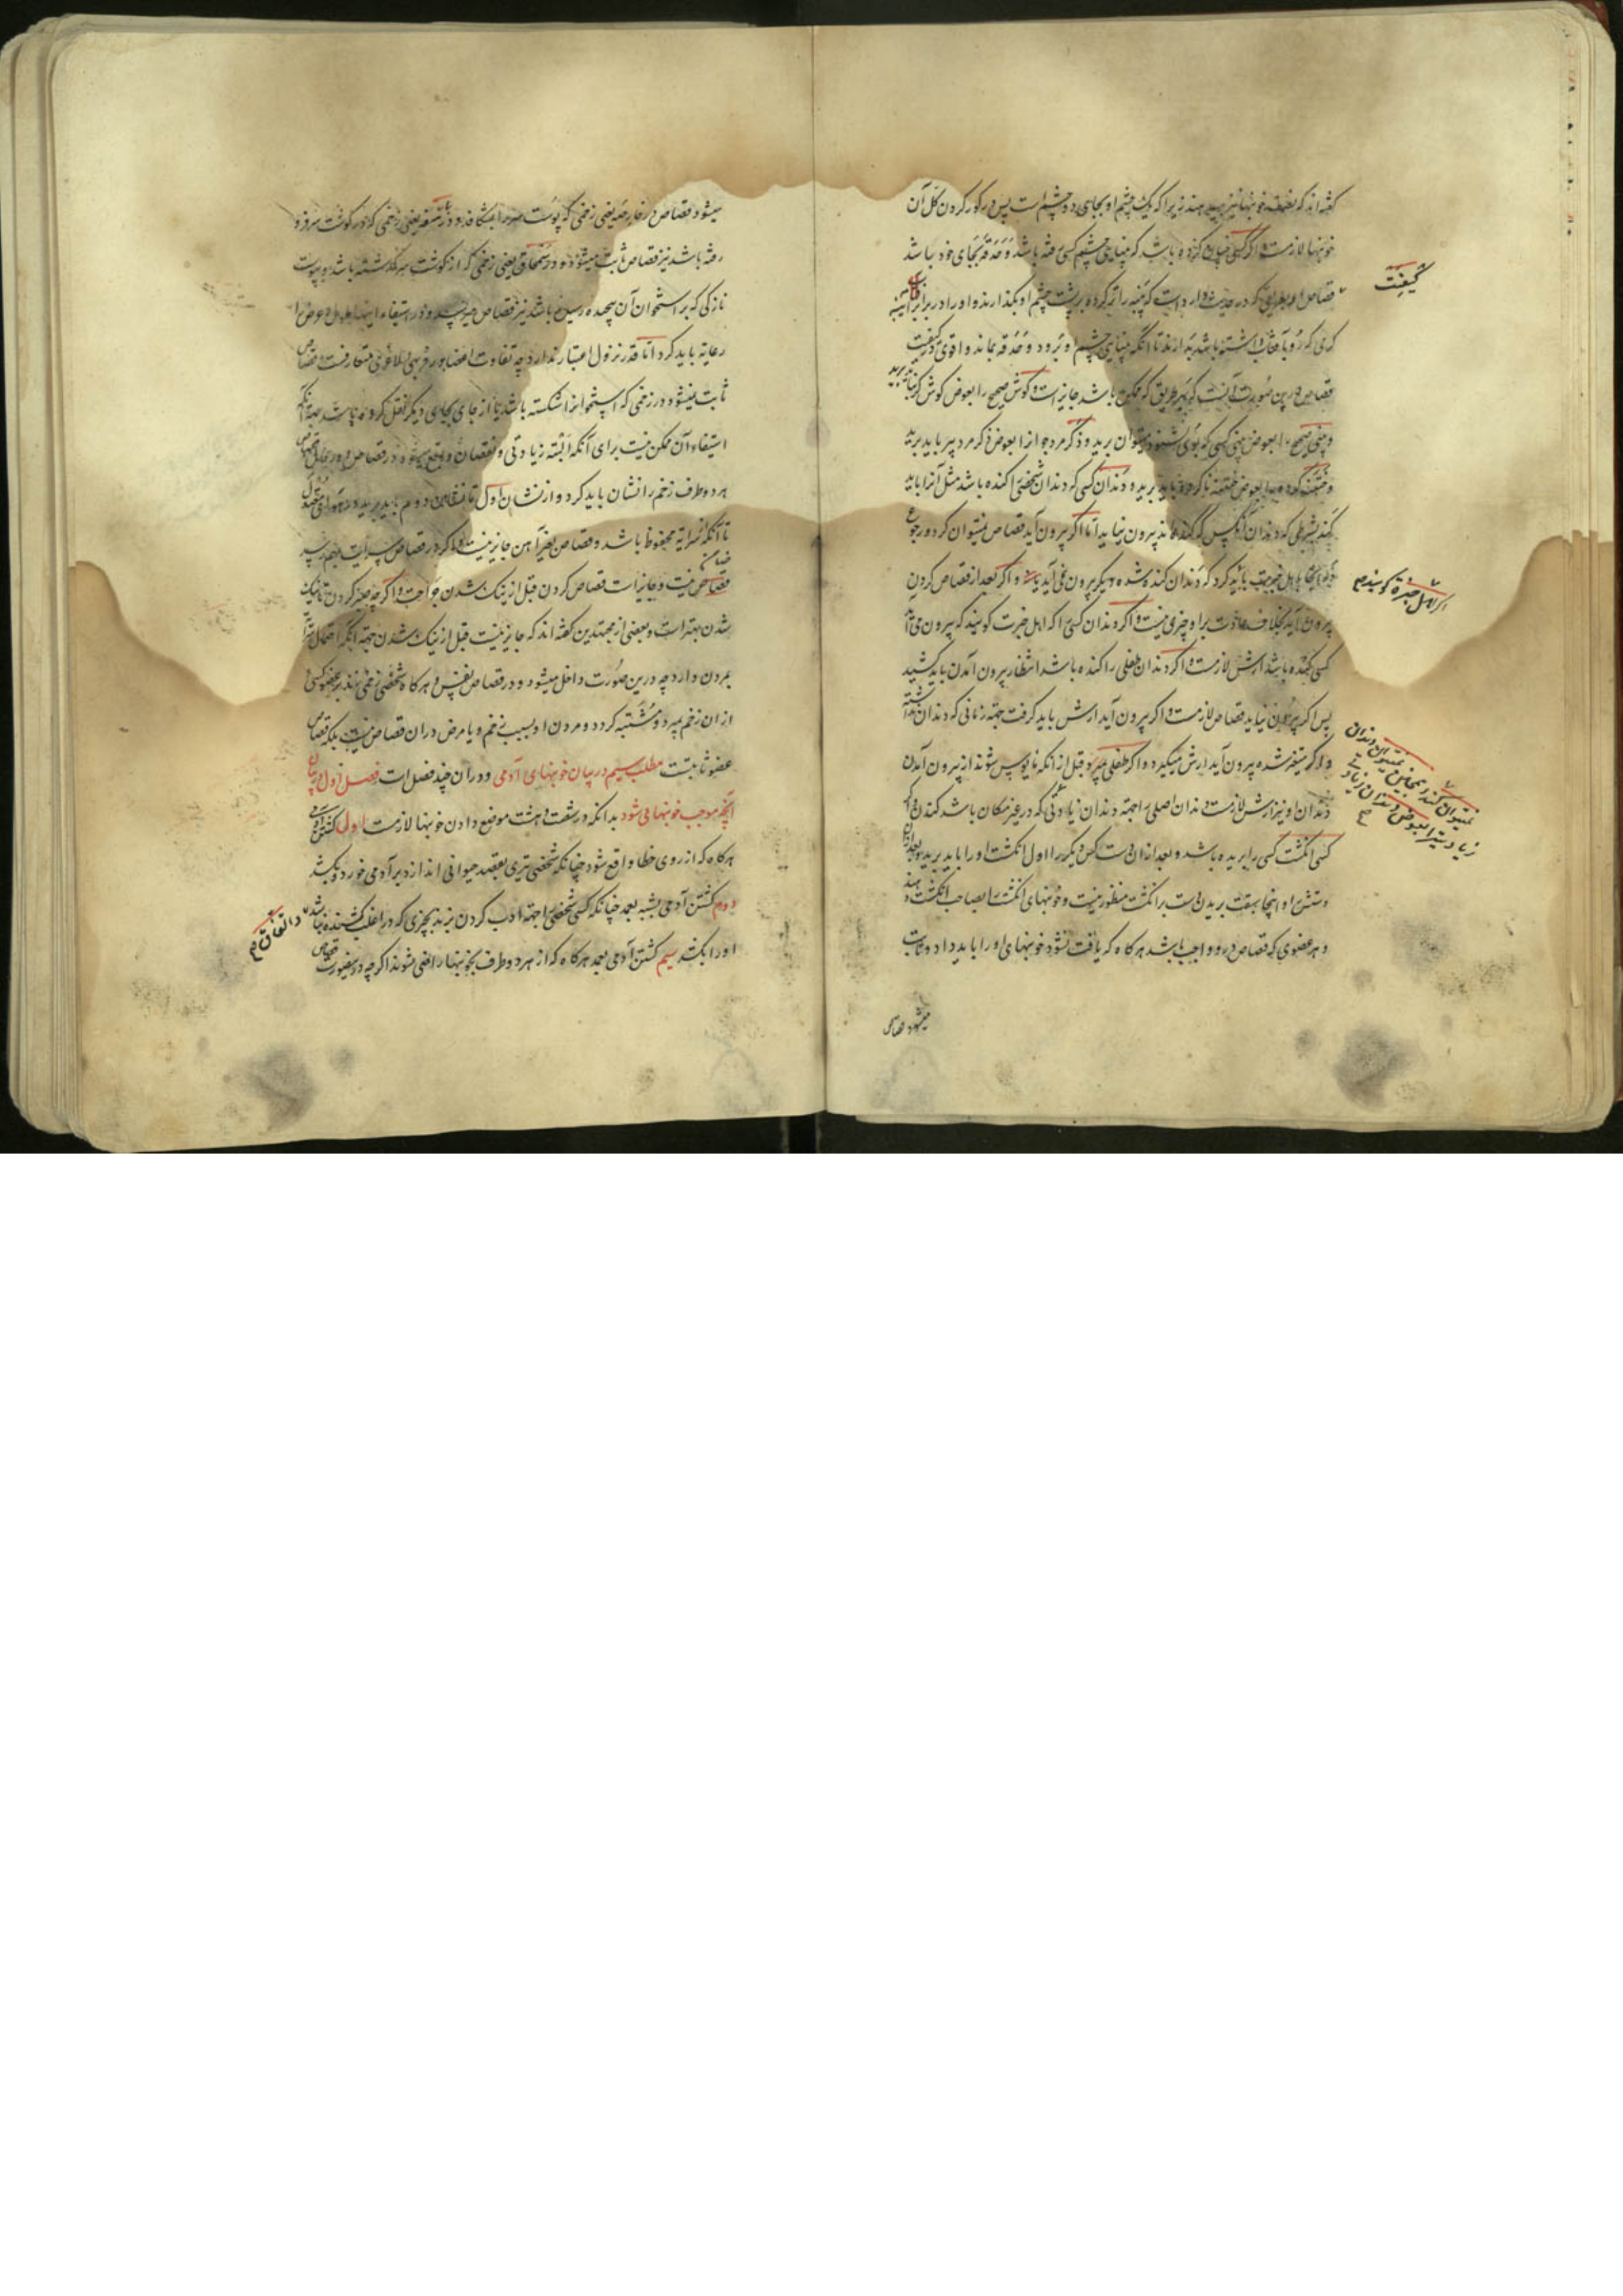 گفته‌اند که نصف خونبها نیز میدهند زیرا که یک چشم او بجای دو چشم است پس در کور کردن کل آن
خونبها لازمست و اگر کسی جنایتی کرده باشد که بینایی چشم کسی رفته باشد و حدقه بجای خود باشد
قصاص او بطریقی که در حدیث وارد است که پنبه را تر کرده بر پشت چشم او بگذارند و او را در برابر آینه
گرمی که رو بآفتاب داشته باشد بدارند تا آنکه بینایی چشم او برود و حدقه بماند و اقوی
قصاص درین صورت آنست که بهر طریق که ممکن باشد جایز است و گوش صحیح را بعوض گوش کر
و بینی صحیح را بعوض بینی کسی که بوی نشنود میتوان برید و ذکر مرد جوانرا بعوض ذکر مرد پیر باید برید
و ختنه کرده را بعوض ختنه ناکرده باید برید و دندان کسی که دندان شخصی را کنده باشد مثل آنرا باید
کند بشرطی که دندان آنکس که کنده‌اند بیرون نیاید اما اگر بیرون آید قصاص نمیتوان کرد و رجوع
باهل خبرت باید کرد که دندان کنده شده دیگر بیرون نمی آید یا نه و اگر بعد از قصاص کردن
بیرون آید بخلاف عادت بر او چیزی نیست و اگر دندان کسی را که اهل خبرت گویند که بیرون می آید
کسی کنده باشد ارش لازمست و اگر دندان طفلی را کنده باشد انتظار بیرون آمدن باید کشید
پس اگر بیرون نیاید قصاص لازمست و اگر بیرون آید ارش باید گرفت جهة زمانی که دندان نداشته
و اگر متغیر شده بیرون آید ارش میگیرد و اگر طفلی بمیرد قبل از آنکه مایوس شوند از بیرون آمدن
دندان او نیز ارش لازمست و دندان اصلی را جهة دندان زیادتی که در غیر مکان باشد نکنند و اگر
کسی انگشت کسی را بریده باشد و بعد از آن دست کس دیگر را اول انگشت او را باید برید و بعد از آن
دستش را و اینجا سبقت بریدن دست بر انگشت منظور نیست و خونبهای انگشت را بصاحب انگشت دهند
و هر عضوی که قصاص درو واجب باشد هرگاه که یافت نشود خونبهای او را باید داد و ثابت
میشود قصاص
کیفیت
اگر اهل خبرة گویند
نمیتوان کند و همچنین نمیتوان دندان
زیادتیرا بعوض دندان زیادتی
میشود قصاص در خارصه یعنی زخمی که پوست سر را بشکافد و در باضعه یعنی زخمی که در گوشت سر فرو
رفته باشد نیز قصاص ثابت میشود و در سمحاق یعنی زخمی که از گوشت سر گذشته باشد و بپوست
نازکی که بر استخوان آن پیچیده رسیده باشد نیز قصاص میرسد و در استیفاء اینها طول و عرض را
رعایة باید کرد اما قدر نزول اعتبار ندارد چه تفاوت اعضا بفربهی و لاغری متعارفست و قصاص
ثابت نمیشود در زخمی که استخوانرا شکسته باشد یا از جای بجای دیگر نقل کرده باشد جهة آنکه
استیفاء آن ممکن نیست برای آنکه البته زیادتی و نقصان واقع میشود و در قصاص
هر دو طرف زخم را نشان باید کرد و از نشان اول تا نشان دوم باید برید و در هوای معتدل
تا آنکه از سرایة محفوظ باشد و قصاص بغیر آهن جایز نیست و اگر در قصاص سرایت بهم رسد
قصاص نیست و جایز است قصاص کردن قبل از نیک شدن جراحت و اگر چه صبر کردن تا نیک
شدن بهتر است و بعضی از مجتهدین گفته‌اند که جایز نیست قبل از نیک شدن جهة آنکه احتمال
مردن وارد چه درین صورت داخل میشود در قصاص نفس و هرگاه شخصی زخمی زند بر عضو کسی
از آن زخم بمیرد و مشتبه گردد مردن او بسبب زخم و یا مرض در آن قصاص نیست بلکه قصاص
عضو ثابتست مطلب سیم در بیان خونبهای آدمی و در آن چند فصل است فصل اول در بیان
آنچه موجب خونبها می شود بدانکه در شصت و هشت موضع دادن خونبها لازمست اول کشتن آدمی
هرگاه که از روی خطا واقع شود چنانکه شخصی تیری بقصد حیوانی اندازد بر آدمی خورد و بکشد
دوم کشتن آدمی بشبه بعمد چنانکه کسی شخصی را جهة ادب کردن بزند بچیزی که در اغلب کشنده نباشد
او را بکشد سیم کشتن آدمی بعمد هرگاه که از هر دو طرف بخونبها راضی شوند اگر چه درینصورت قصاص